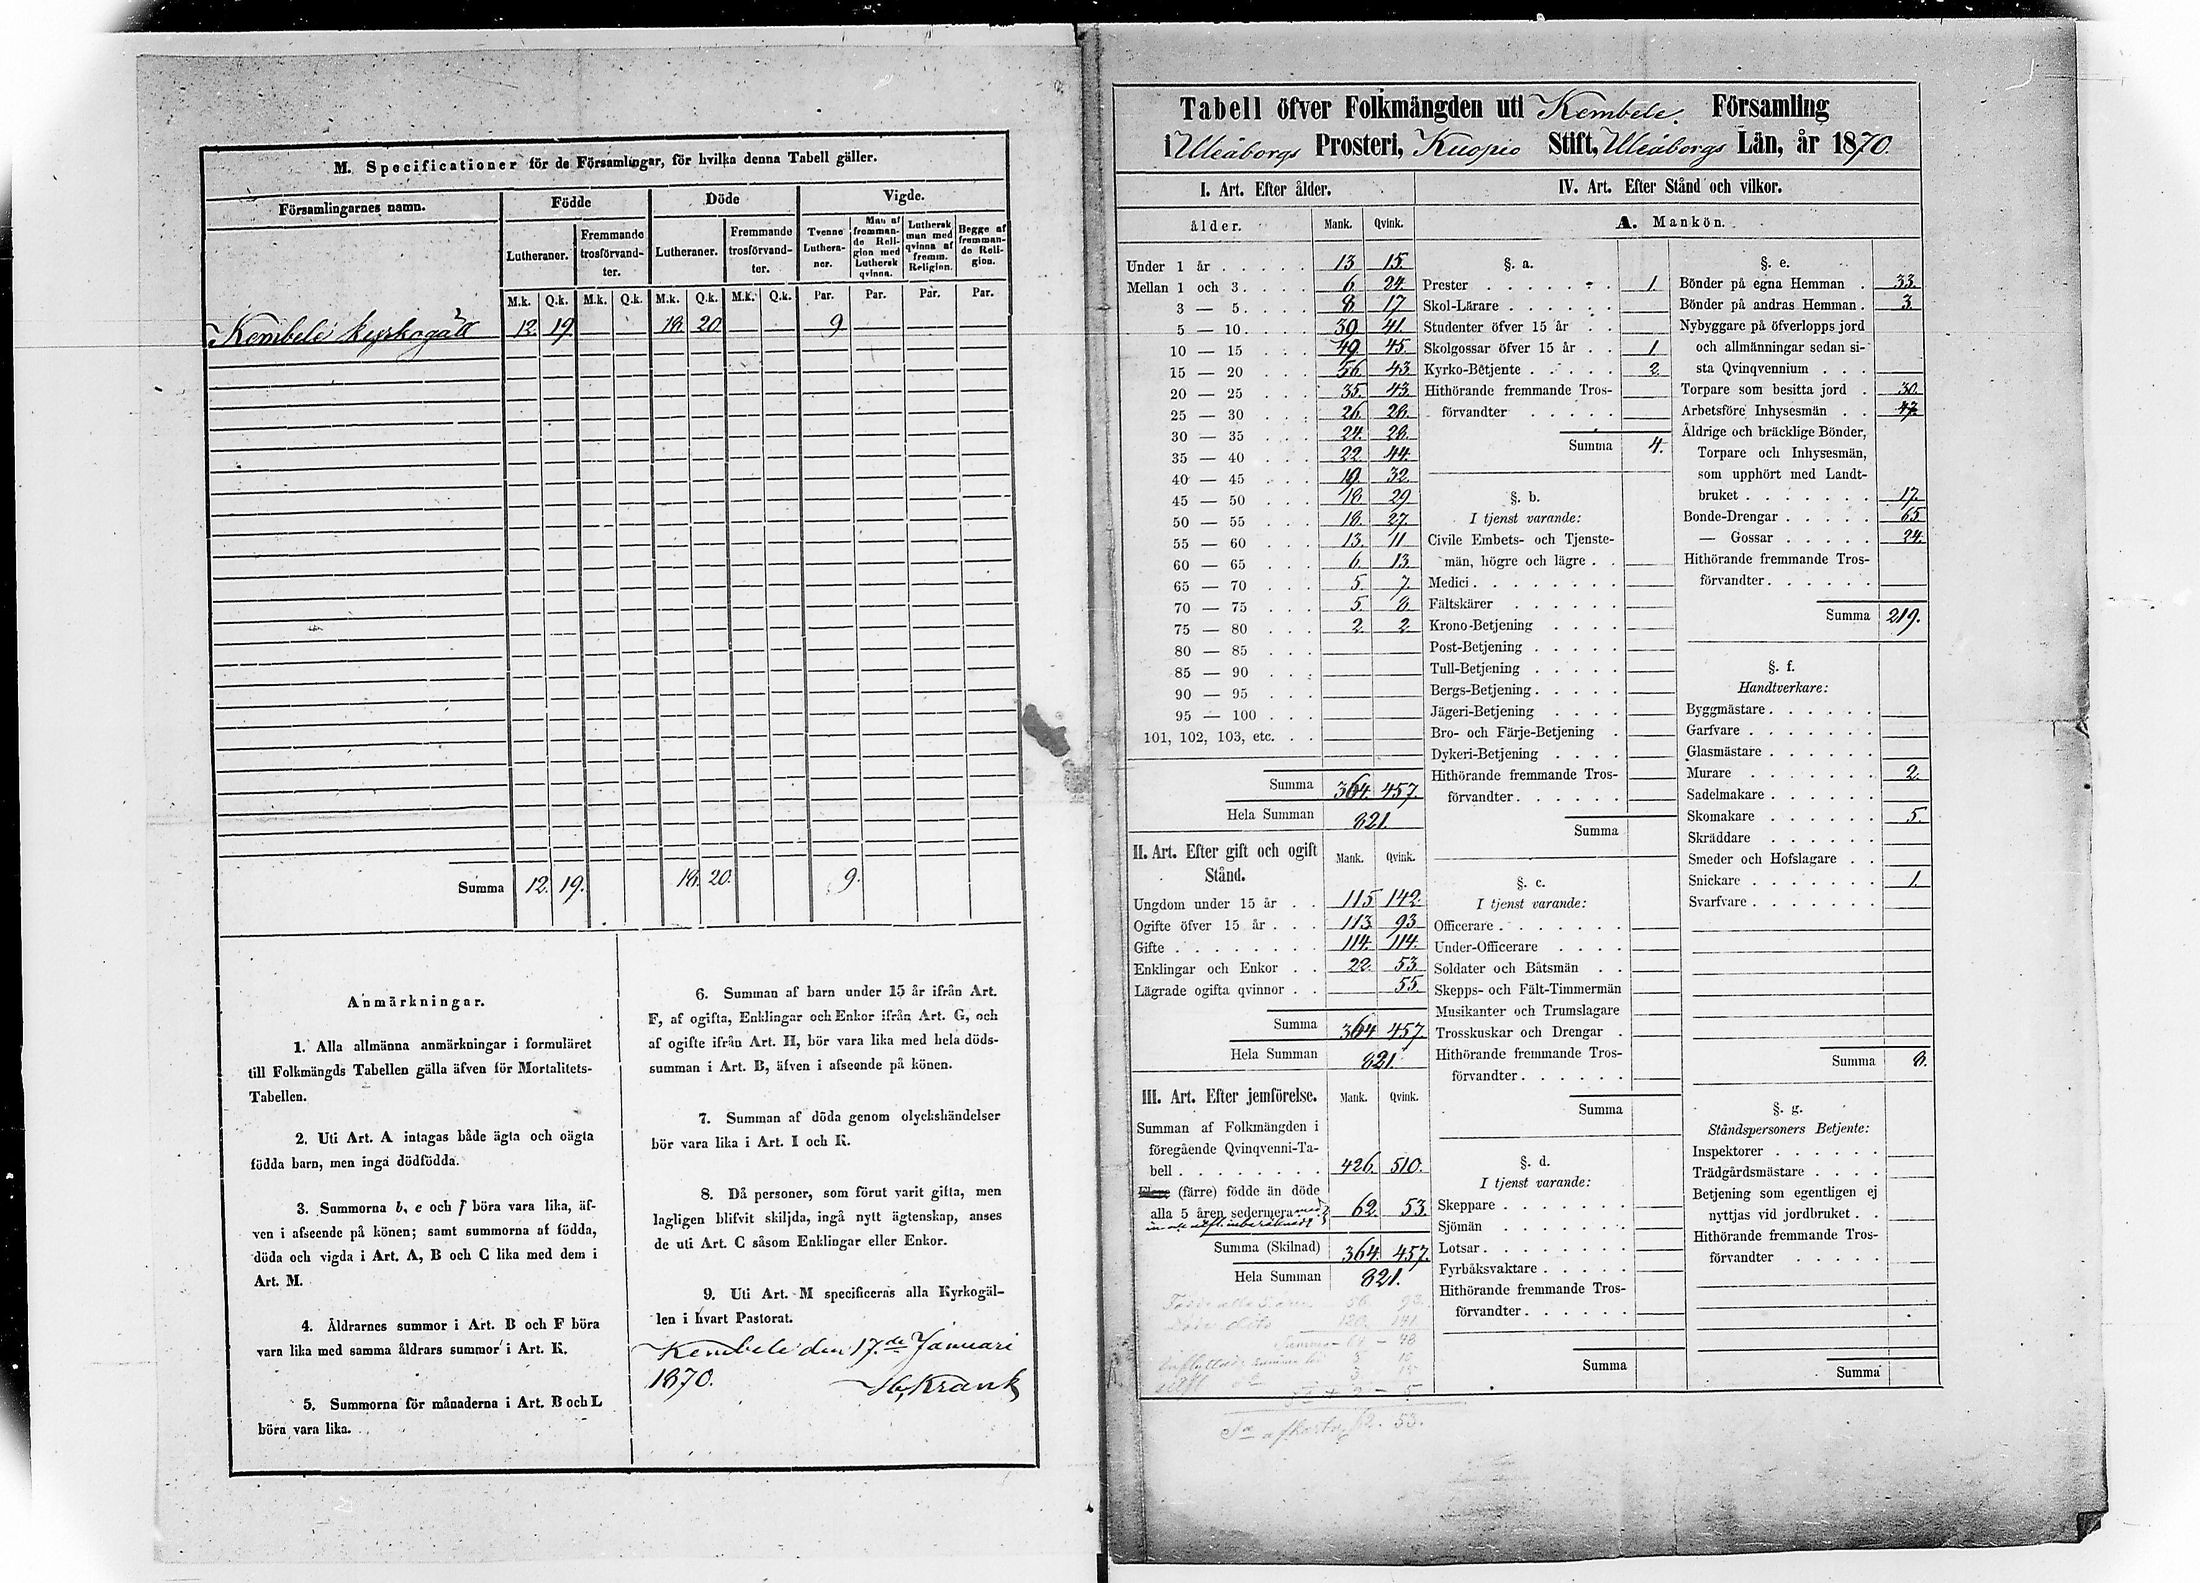 M. Specificationer för de Församlingar, för hvilka denna Tabell gäller.
Församlingarnes namn. Födde Döde Vigde.
Lutheraner. Fremmande trosförvandter. Lutheraner. Fremmande trosförvandter. Tvenne Lutheraner. Man af fremmande Religion med Luthersk qvinna. Luthersk man med qvinna af fremm. Religion. Begge af fremmande Religion.
M.k. Q.k. M.k. Q.k. M.k. Q.k. M.k. Q.k. Par. Par. Par. Par.
Kembele kyrkogäll 12. 19. 18. 20. 9
Summa 12. 19. 18. 20. 9.
Anmärkningar.
1. Alla allmänna anmärkningar i formuläret
till Folkmängds Tabellen gälla äfven för Mortalitets-
Tabellen.
2. Uti Art. A intagas både ägta och oägta
födda barn, men inga dödfödda.
3. Summorna b, e och f böra vara lika, äf-
ven i afseende på könen; samt summorna af födda,
döda och vigda i Art. A, B och C lika med dem i
Art. M.
4. Åldrarnes summor i Art. B och F böra
vara lika med samma åldrars summor i Art. K.
5. Summorna för månaderna i Art. B och L
böra vara lika.
6. Summan af barn under 15 år ifrån Art.
F, af ogifta, Enklingar och Enkor ifrån Art. G, och
af ogifte ifrån Art. H, bör vara lika med hela döds-
summan i Art. B, äfven i afseende på könen.
7. Summan af döda genom olyckshändelser
bör vara lika i Art. I och K.
8. Då personer, som förut varit gifta, men
lagligen blifvit skiljda, ingå nytt ägtenskap, anses
de uti Art. C såsom Enklingar eller Enkor.
9. Uti Art. M specificeras alla Kyrkogäl-
len i hvart Pastorat.
Kembele den 17.de Januari
1870. Krank
Tabell öfver Folkmängden uti Kembele. Församling
i Uleåborgs Prosteri, Kuopio Stift, Uleåborgs Län, år 1870.
I. Art. Efter ålder.
ålder. Mank. Qvink.
Under 1 år 13 15.
Mellan 1 och 3 6 24.
3 — 5 8 17
5 — 10 39 41.
10 — 15 49 45.
15 — 20 56 43
20 — 25 35. 43.
25 — 30 26. 28.
30 — 35 24. 28.
35 — 40 22. 44.
40 — 45 19. 32.
45 — 50 18 29
50 — 55 18. 27.
55 — 60 13. 11
60 — 65 6. 13
65 — 70 5. 7.
70 — 75 5 8.
75 — 80 2. 2.
80 — 85
85 — 90
90 — 95
95 — 100
101, 102, 103, etc.
Summa 364. 457.
Hela Summan 821.
II. Art. Efter gift och ogift Stånd. Mank. Qvink.
Ungdom under 15 år 115 142.
Ogifte öfver 15 år 113 93.
Gifte 114. 114.
Enklingar och Enkor 22. 53.
Lägrade ogifta qvinnor 55.
Summa 364 457.
Hela Summan 821.
III. Art. Efter jemförelse. Mank. Qvink.
Summan af Folkmängden i
föregående Qvinqvenni-Ta-
bell 426. 510.
Flere (färre) födde än döde
alla 5 åren sedermera 62. 53.
Summa (Skilnad) 364. 457.
Hela Summan 821.
62. 53.
IV. Art. Efter Stånd och vilkor.
A. Mankön.
§. a.
Prester 1
Skol-Lärare
Studenter öfver 15 år
Skolgossar öfver 15 år 1
Kyrko-Betjente 2
Hithörande fremmande Tros-
förvandter
Summa 4.
§. b.
I tjenst varande:
Civile Embets- och Tjenste-
män, högre och lägre
Medici
Fältskärer
Krono-Betjening
Post-Betjening
Tull-Betjening
Bergs-Betjening
Jägeri-Betjening
Bro- och Färje-Betjening
Dykeri-Betjening
Hithörande fremmande Tros-
förvandter
Summa
§. c.
I tjenst varande:
Officerare
Under-Officerare
Soldater och Båtsmän
Skepps- och Fält-Timmermän
Musikanter och Trumslagare
Trosskuskar och Drengar
Hithörande fremmande Tros-
förvandter
Summa
§. d.
I tjenst varande:
Skeppare
Sjömän
Lotsar
Fyrbåksvaktare
Hithörande fremmande Tros-
förvandter
Summa
§. e.
Bönder på egna Hemman 33
Bönder på andras Hemman 3
Nybyggare på öfverlopps jord
och allmänningar sedan si-
sta Qvinqvennium
Torpare som besitta jord 30
Arbetsföre Inhysesmän 47.
Äldrige och bräcklige Bönder,
Torpare och Inhysesmän,
som upphört med Landt-
bruket 17.
Bonde-Drengar 65
— Gossar 24.
Hithörande fremmande Tros-
förvandter
Summa 219.
§. f.
Handtverkare:
Byggmästare
Garfvare
Glasmästare
Murare 2.
Sadelmakare
Skomakare 5.
Skräddare
Smeder och Hofslagare
Snickare 1.
Svarfvare
Summa 8.
§. g.
Ståndspersoners Betjente:
Inspektorer
Trädgårdsmästare
Betjening som egentligen ej
nyttjas vid jordbruket
Hithörande fremmande Tros-
förvandter
Summa